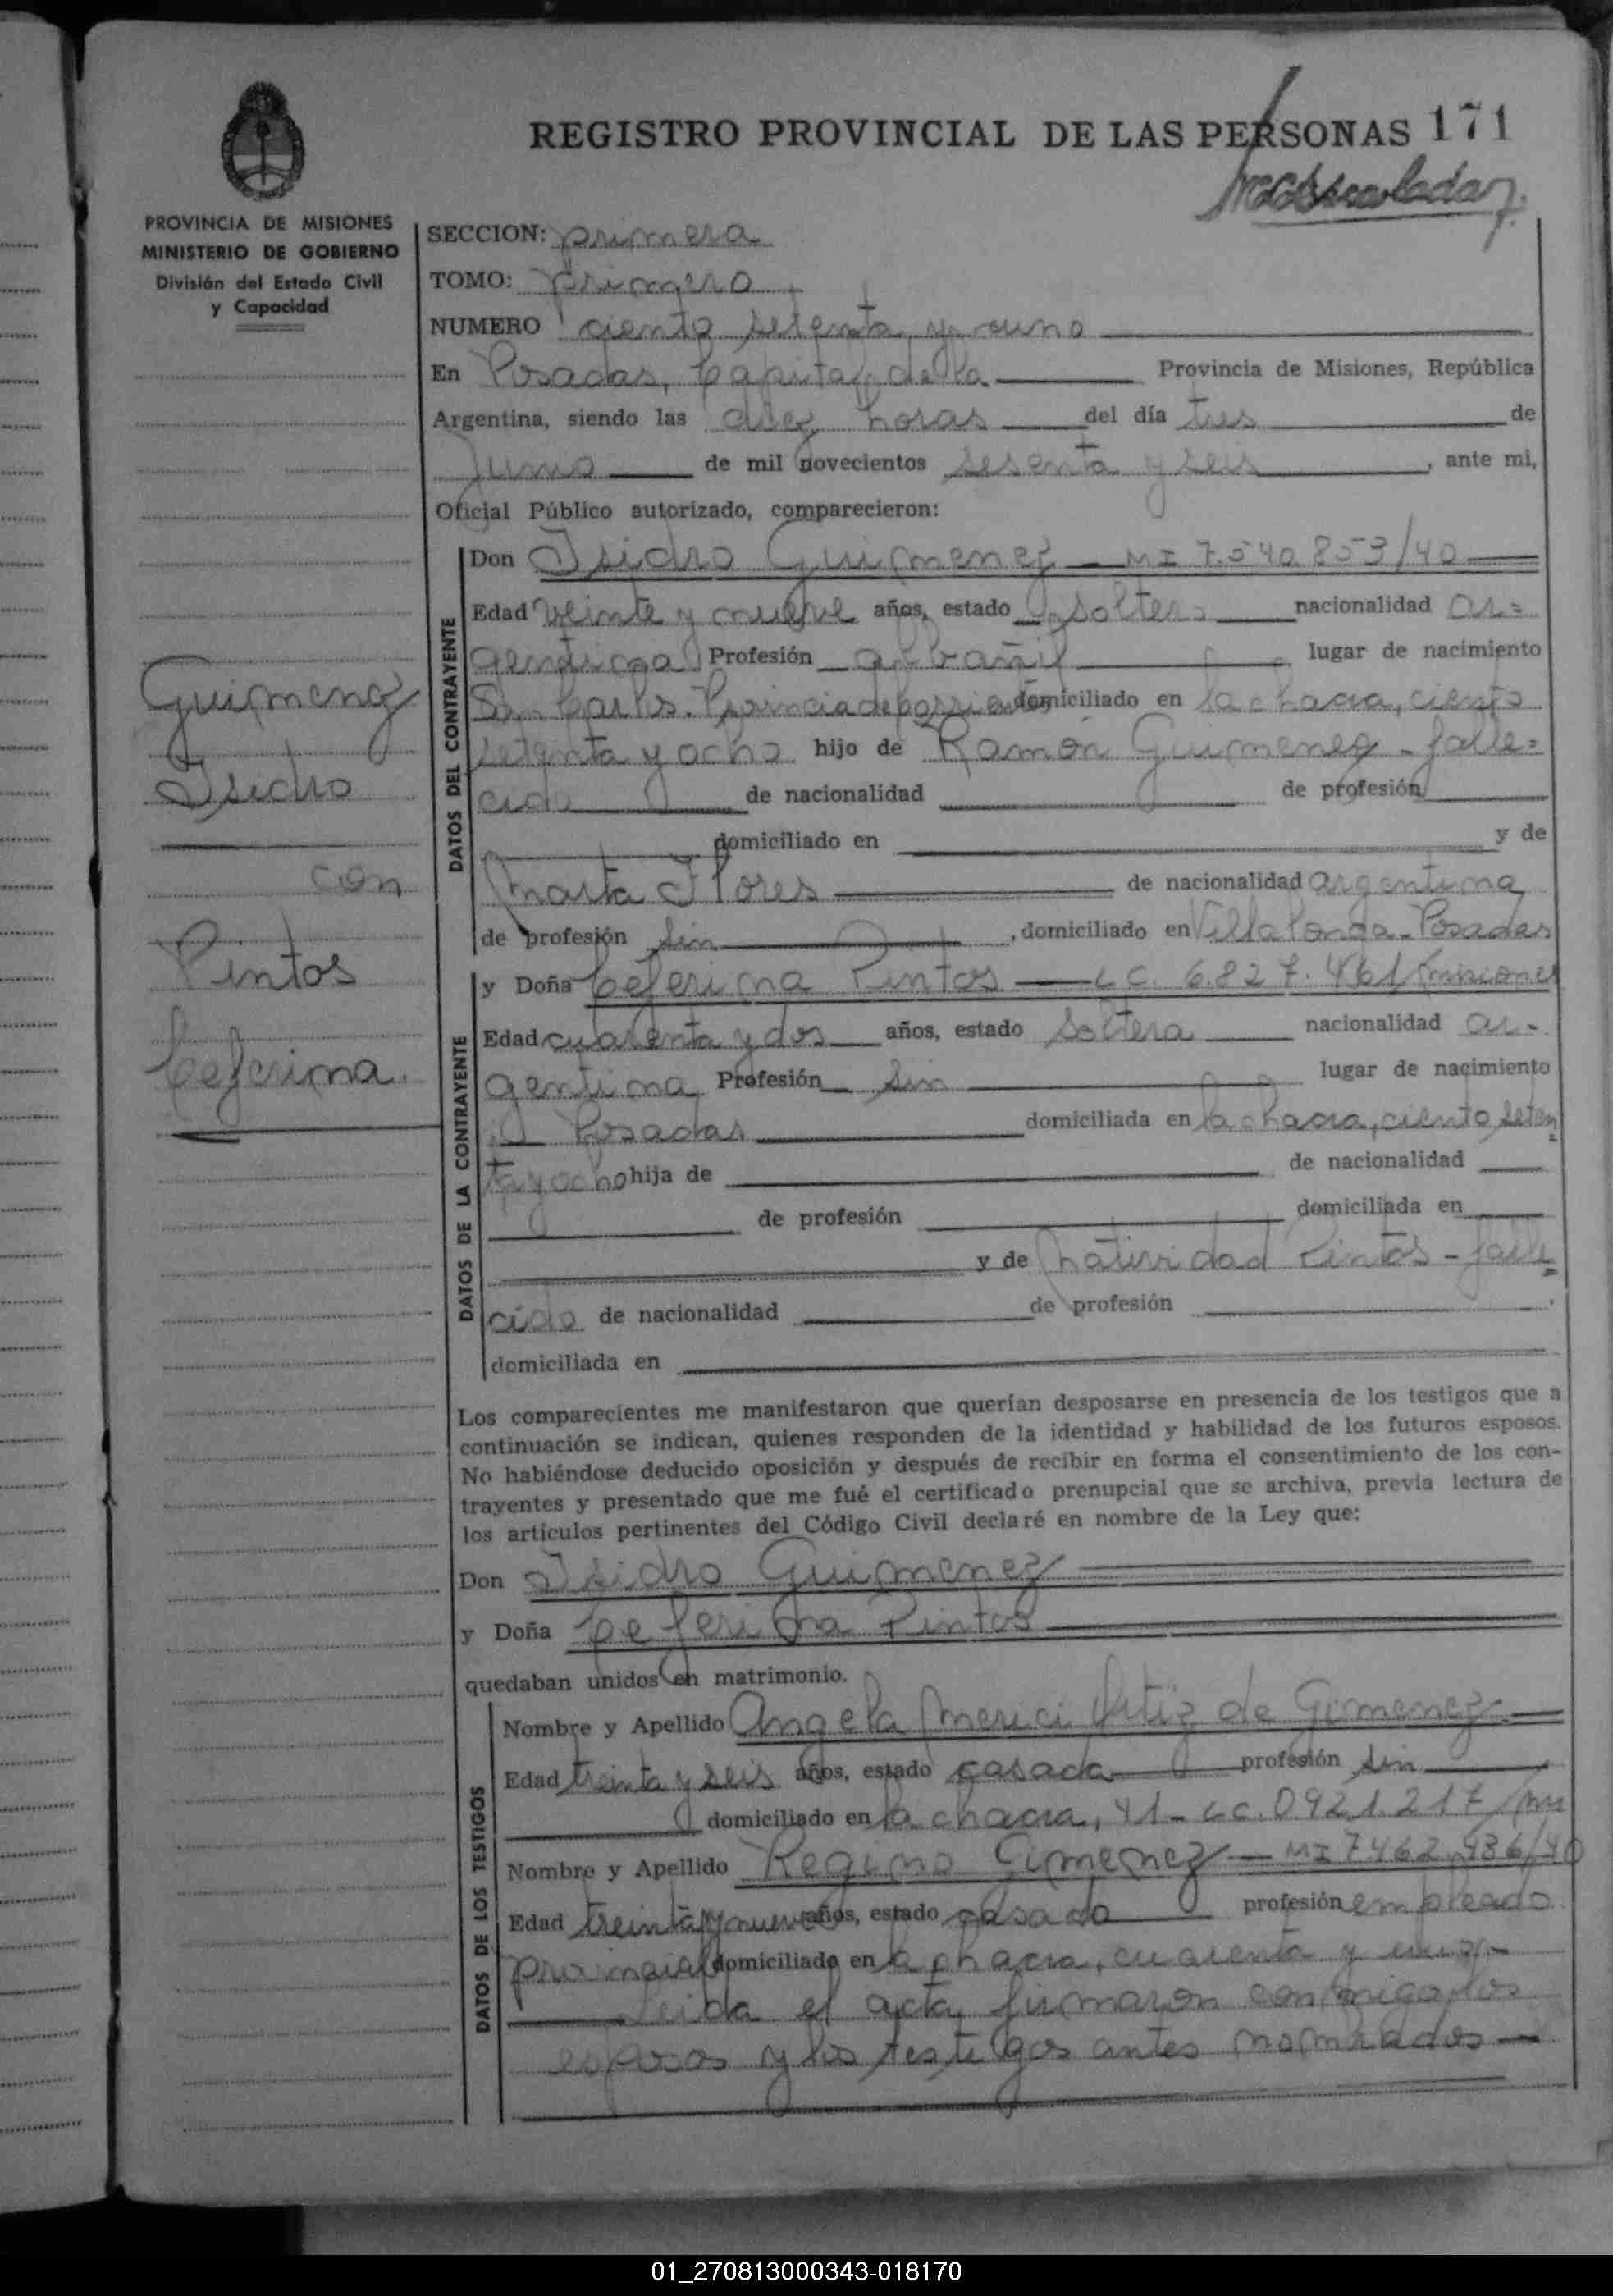 REGISTRO PROVINCIAL DE LAS PERSONAS 171
PROVINCIA DE MISIONES
MINISTERIO DE GOBIERNO
División del Estado Civil
y Capacidad
Guimenez
Isidro
con
Pintos
Ceferina.
SECCION: primera
TOMO: primero
NUMERO ciento setenta y uno
En Posadas, Capital de la Provincia de Misiones, República
Argentina, siendo las diez horas del día tres de
Junio de mil novecientos sesenta y seis, ante mi,
Oficial Público autorizado, comparecieron:
DATOS DEL CONTRAYENTE
Don Isidro Guimenez - MI 7.540.853/40
Edad veinte y nueve años, estado soltero nacionalidad ar=
gentina Profesión albañil lugar de nacimiento
San Carlos. Provincia de Corrientes domiciliado en la chacra, ciento
setenta y ocho hijo de Ramón Guimenez - falle=
cido de nacionalidad de profesión
domiciliado en y de
Marta Flores de nacionalidad argentina
de profesión sin, domiciliado en Villa Longa - Posadas
DATOS DE LA CONTRAYENTE
y Doña Ceferina Pintos - LC. 6.827.461/misiones
Edad cuarenta y dos años, estado soltera nacionalidad ar-
gentina Profesión sin lugar de nacimiento
Posadas domiciliada en la chacra, ciento seten
ta y ocho hija de de nacionalidad
de profesión domiciliada en
y de Natividad Pintos - falle
cido de nacionalidad de profesión .
domiciliada en
Los comparecientes me manifestaron que querían desposarse en presencia de los testigos que a
continuación se indican, quienes responden de la identidad y habilidad de los futuros esposos.
No habiéndose deducido oposición y después de recibir en forma el consentimiento de los con-
trayentes y presentado que me fué el certificado prenupcial que se archiva, previa lectura de
los artículos pertinentes del Código Civil declaré en nombre de la Ley que:
Don Isidro Guimenez
y Doña Ceferina Pintos
quedaban unidos en matrimonio.
DATOS DE LOS TESTIGOS
Nombre y Apellido Angela Merici Ortiz de Gimenez
Edad treinta y seis años, estado casada profesión sin
domiciliado en la chacra, 41 - LC. 0921.217/mis
Nombre y Apellido Regino Gimenez - MI 7462.436/40
Edad treinta y nueve años, estado casado profesión empleado
provincial domiciliado en la chacra, cuarenta y uno -
Leida el acta firmaron conmigo, los
esposos y los testigos antes nombrados
01_270813000343-018170